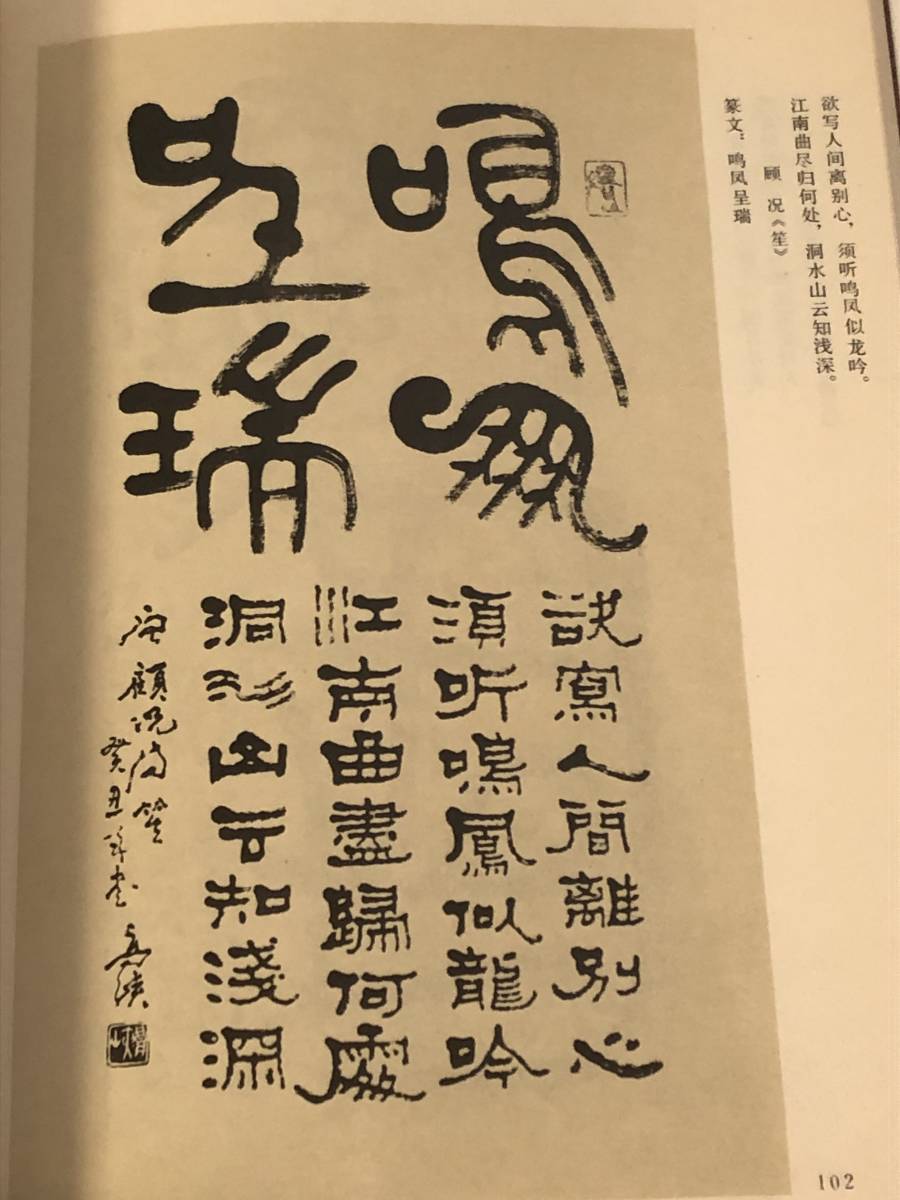 欲写人间离别心，须听鸣凤似龙吟。
江南曲尽归何处，洞水山云知浅深。
顾况《笙》
篆文：鸣凤呈瑞
鳴鳳
呈瑞
欲寫人間離別心
須听鳴鳳似龍吟
江南曲盡歸何處
洞水山云知淺深
唐顧況詩笙
癸丑年书
102